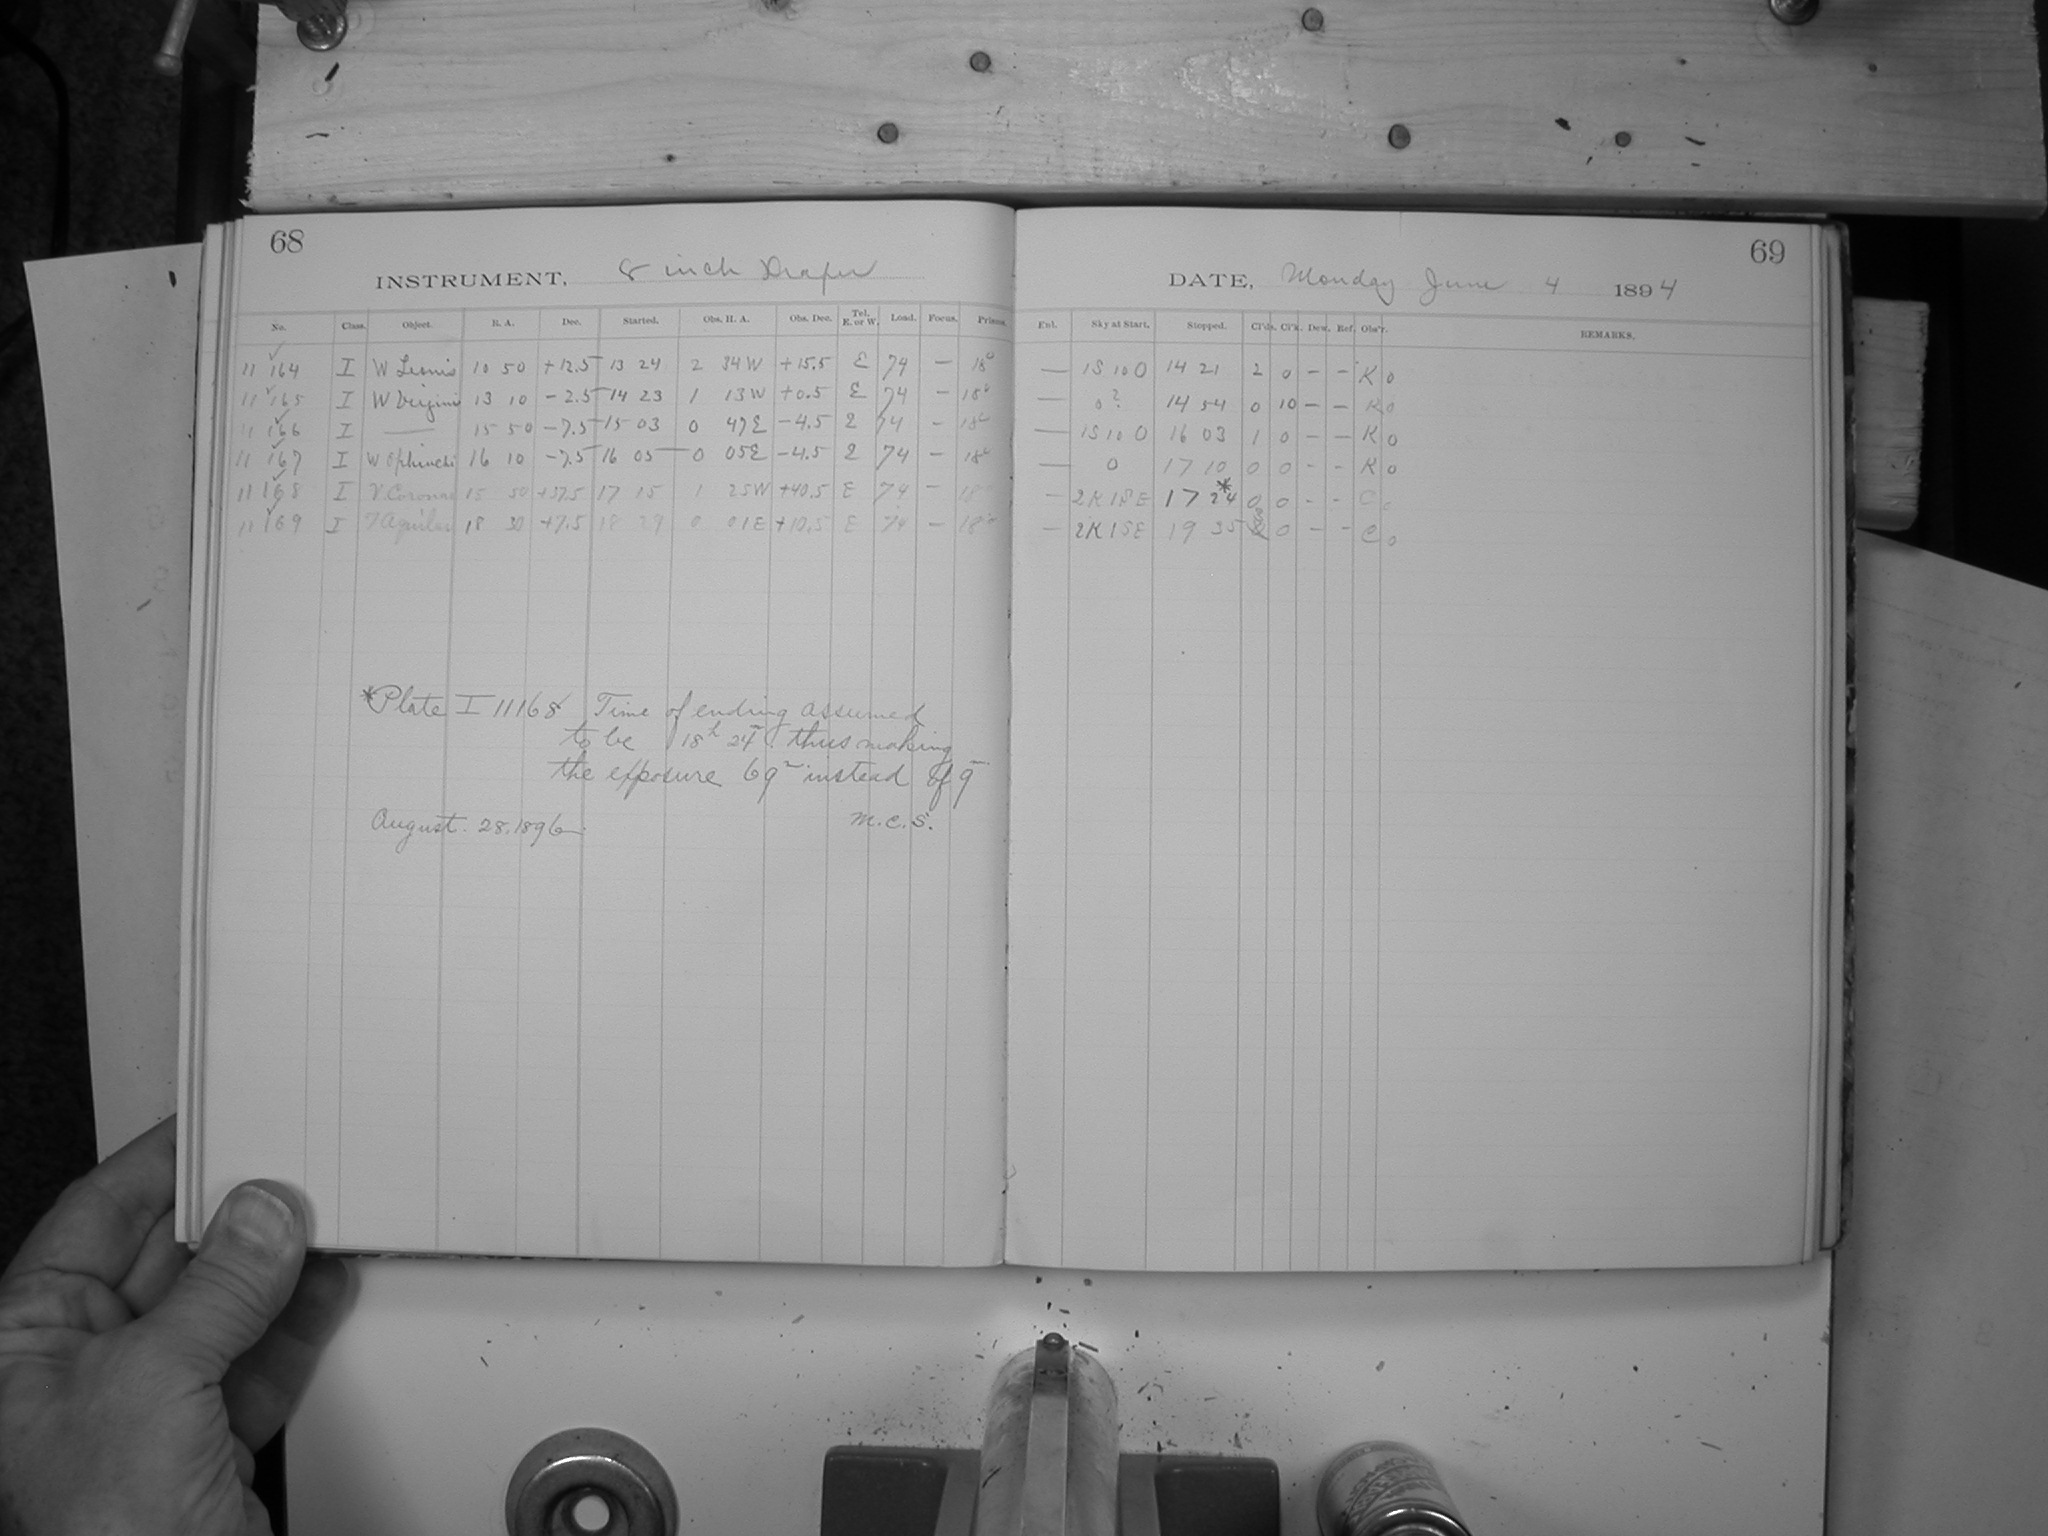 68
INSTRUMENT, 8 inch Draper
No. Class. Object. R. A. Dec. Started. Obs. H. A. Obs. Dec. Tel. E. or W. Load. Focus. Prisms.
11 164 I W Leonis 10 50 +12.5 13 24 2 34W +15.5 E 74 — 18
11 165 I W Virginis 13 10 -2.5 14 23 1 13W +0.5 E 74 — 18
11 166 I — 15 50 -7.5 15 03 0 47E -4.5 E 74 — 18
11 167 I W Ophiuchi 16 10 -7.5 16 05 0 05E -4.5 E 74 — 18
11 168 I V Coronae 15 50 +37.5 17 15 1 25W +40.5 E 74 — 18
11 169 I T Aquilae 18 30 +7.5 18 29 0 01E +10.5 E 74 — 18
*Plate I 11168 Time of ending assumed
to be 18h 24m. thus making
the exposure 69m instead of 9m.
August. 28. 1896. M.C.S.
69
DATE, Monday June 4 1894
Enl. Sky at Start. Stopped. Cl'ds. Cl'k. Dew. Ref. Obs'r. REMARKS.
— 1S 10 0 14 21 2 0 - - K 0
— 0? 14 54 0 10 - - K 0
— 1S 10 0 16 03 1 0 - - K 0
— 0 17 10 0 0 - - K 0
— 2K1SE 17 24* 0 0 - - C 0
— 2K1SE 19 35 0 - - C 0